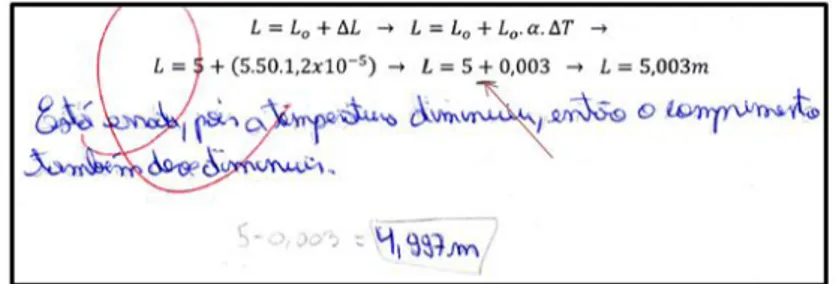 L = Lₒ + ΔL → L = Lₒ + Lₒ.α.ΔT →
L = 5 + (5.50.1,2x10⁻⁵) → L = 5 + 0,003 → L = 5,003m
Está errada, pois a temperatura diminuiu, então o comprimento
também deve diminuir.
5-0,003 = 4,997m